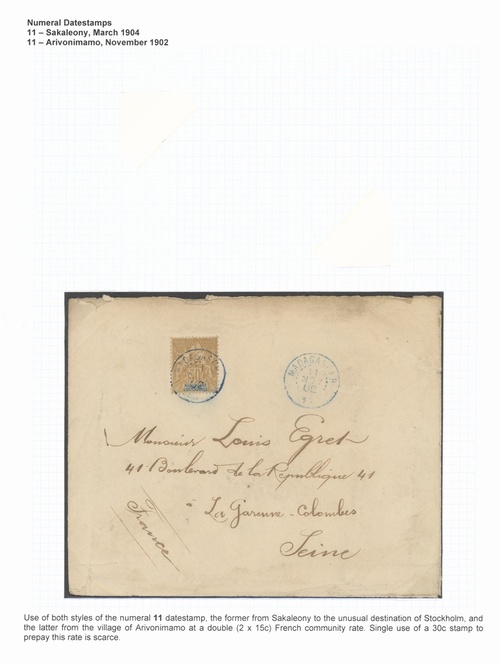 Numeral Datestamps
11 – Sakaleony, March 1904
11 – Arivonimamo, November 1902
MADAGASCAR
11
02
Monsieur Louis Egret
41 Boulevard de la République 41
à La Garenne-Colombes
Seine
France
Use of both styles of the numeral 11 datestamp, the former from Sakaleony to the unusual destination of Stockholm, and
the latter from the village of Arivonimamo at a double (2 x 15c) French community rate. Single use of a 30c stamp to
prepay this rate is scarce.